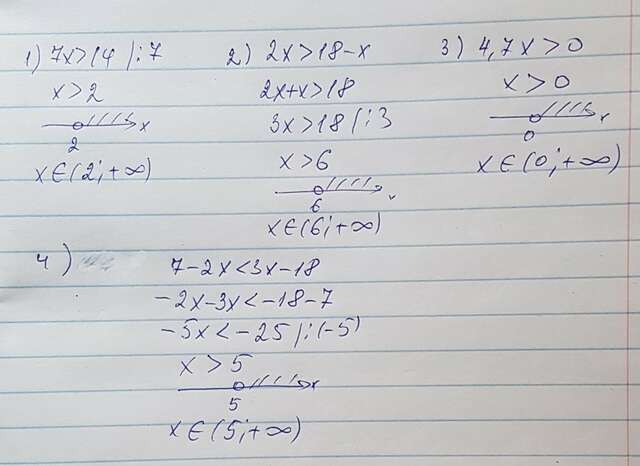 1) 7x>14 |:7
x>2
x
2
x∈(2;+∞)
2) 2x>18-x
2x+x>18
3x>18 |:3
x>6
6
x∈(6;+∞)
3) 4,7x>0
x>0
x
0
x∈(0;+∞)
4)
7-2x<3x-18
-2x-3x<-18-7
-5x<-25 |:(-5)
x>5
x
5
x∈(5;+∞)